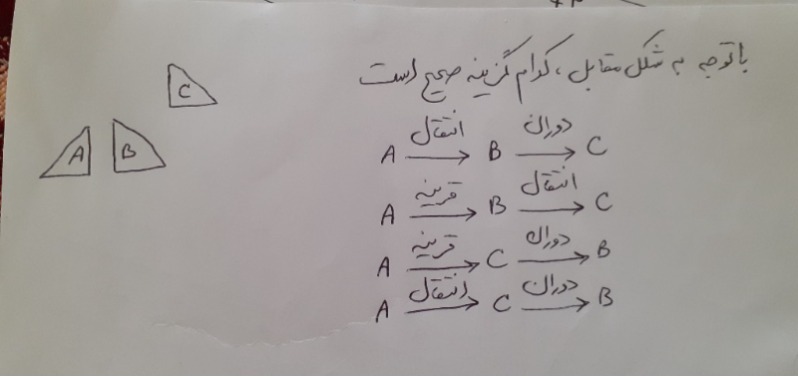 با توجه به شکل مقابل، کدام گزینه صحیح است
A انتقال → B دوران → C
A قرینه → B انتقال → C
A قرینه → C دوران → B
A انتقال → C دوران → B
C
A B